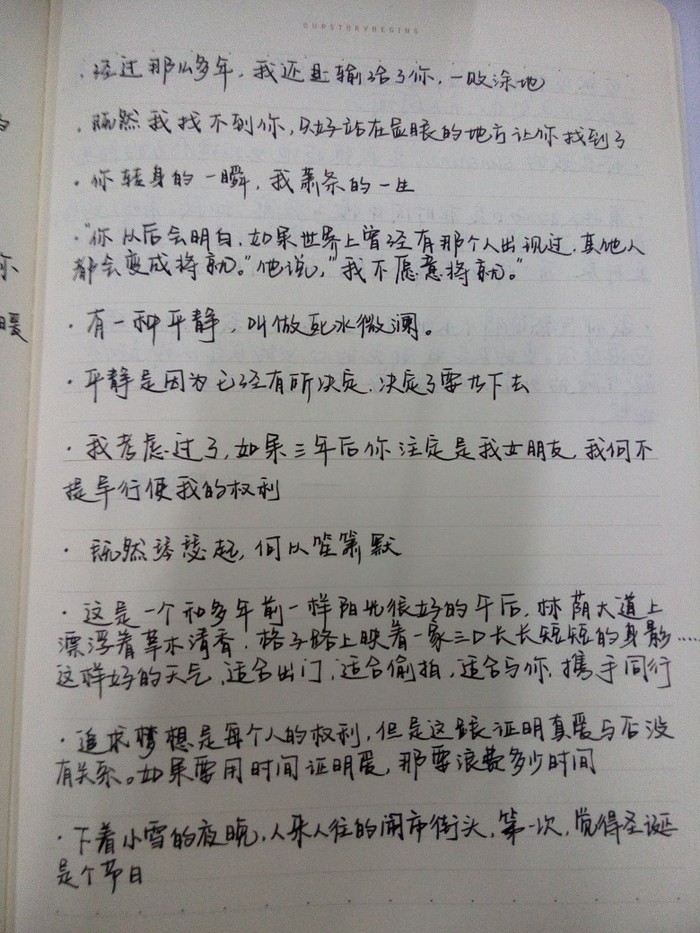 OURSTORYBEGINS
·经过那么多年，我还是输给了你，一败涂地
·既然我找不到你，只好站在显眼的地方让你找到了
·你转身的一瞬，我萧条的一生
·“你以后会明白，如果世界上曾经有那个人出现过，其他人
都会变成将就。”他说，“我不愿意将就。”
·有一种平静，叫做死水微澜。
·平静是因为已经有所决定，决定了要如下去
·我考虑过了，如果三年后你注定是我女朋友，我何不
提早行使我的权利
·既然琴瑟起，何以笙箫默
·这是一个和多年前一样阳光很好的午后，林荫大道上
漂浮着草木清香，格子路上映着一家三口长长短短的身影……
这样好的天气，适合出门，适合偷拍，适合与你，携手同行
·追求梦想是每个人的权利，但是这跟证明真爱与否没
有关系。如果要用时间证明爱，那要浪费多少时间
·下着小雪的夜晚，人来人往的闹市街头，第一次，觉得圣诞
是个节日
尔
暖